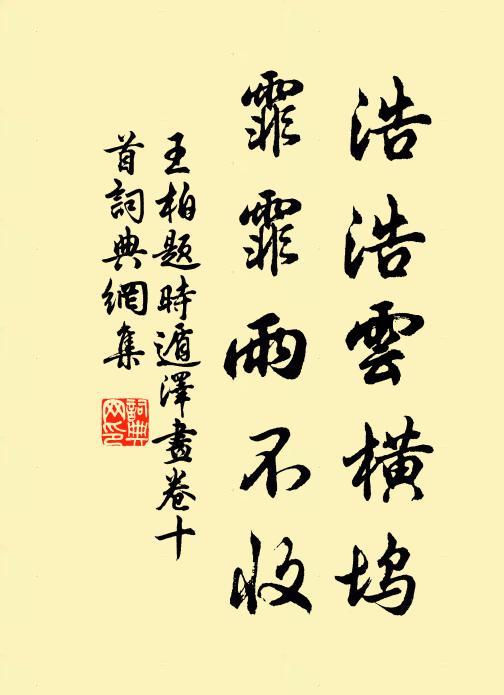 浩浩雲横塢
霏霏雨不收
王柏題時遁澤畫卷十
首詞典網集
詞典
网印